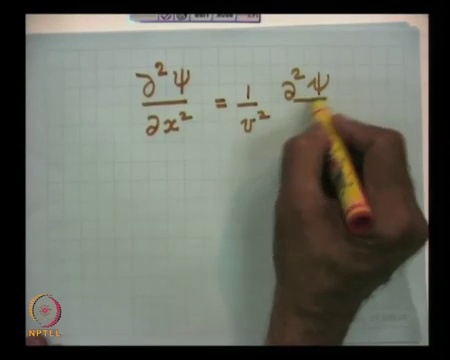 ∂²ψ/∂x² = 1/v² ∂²ψ
NPTEL